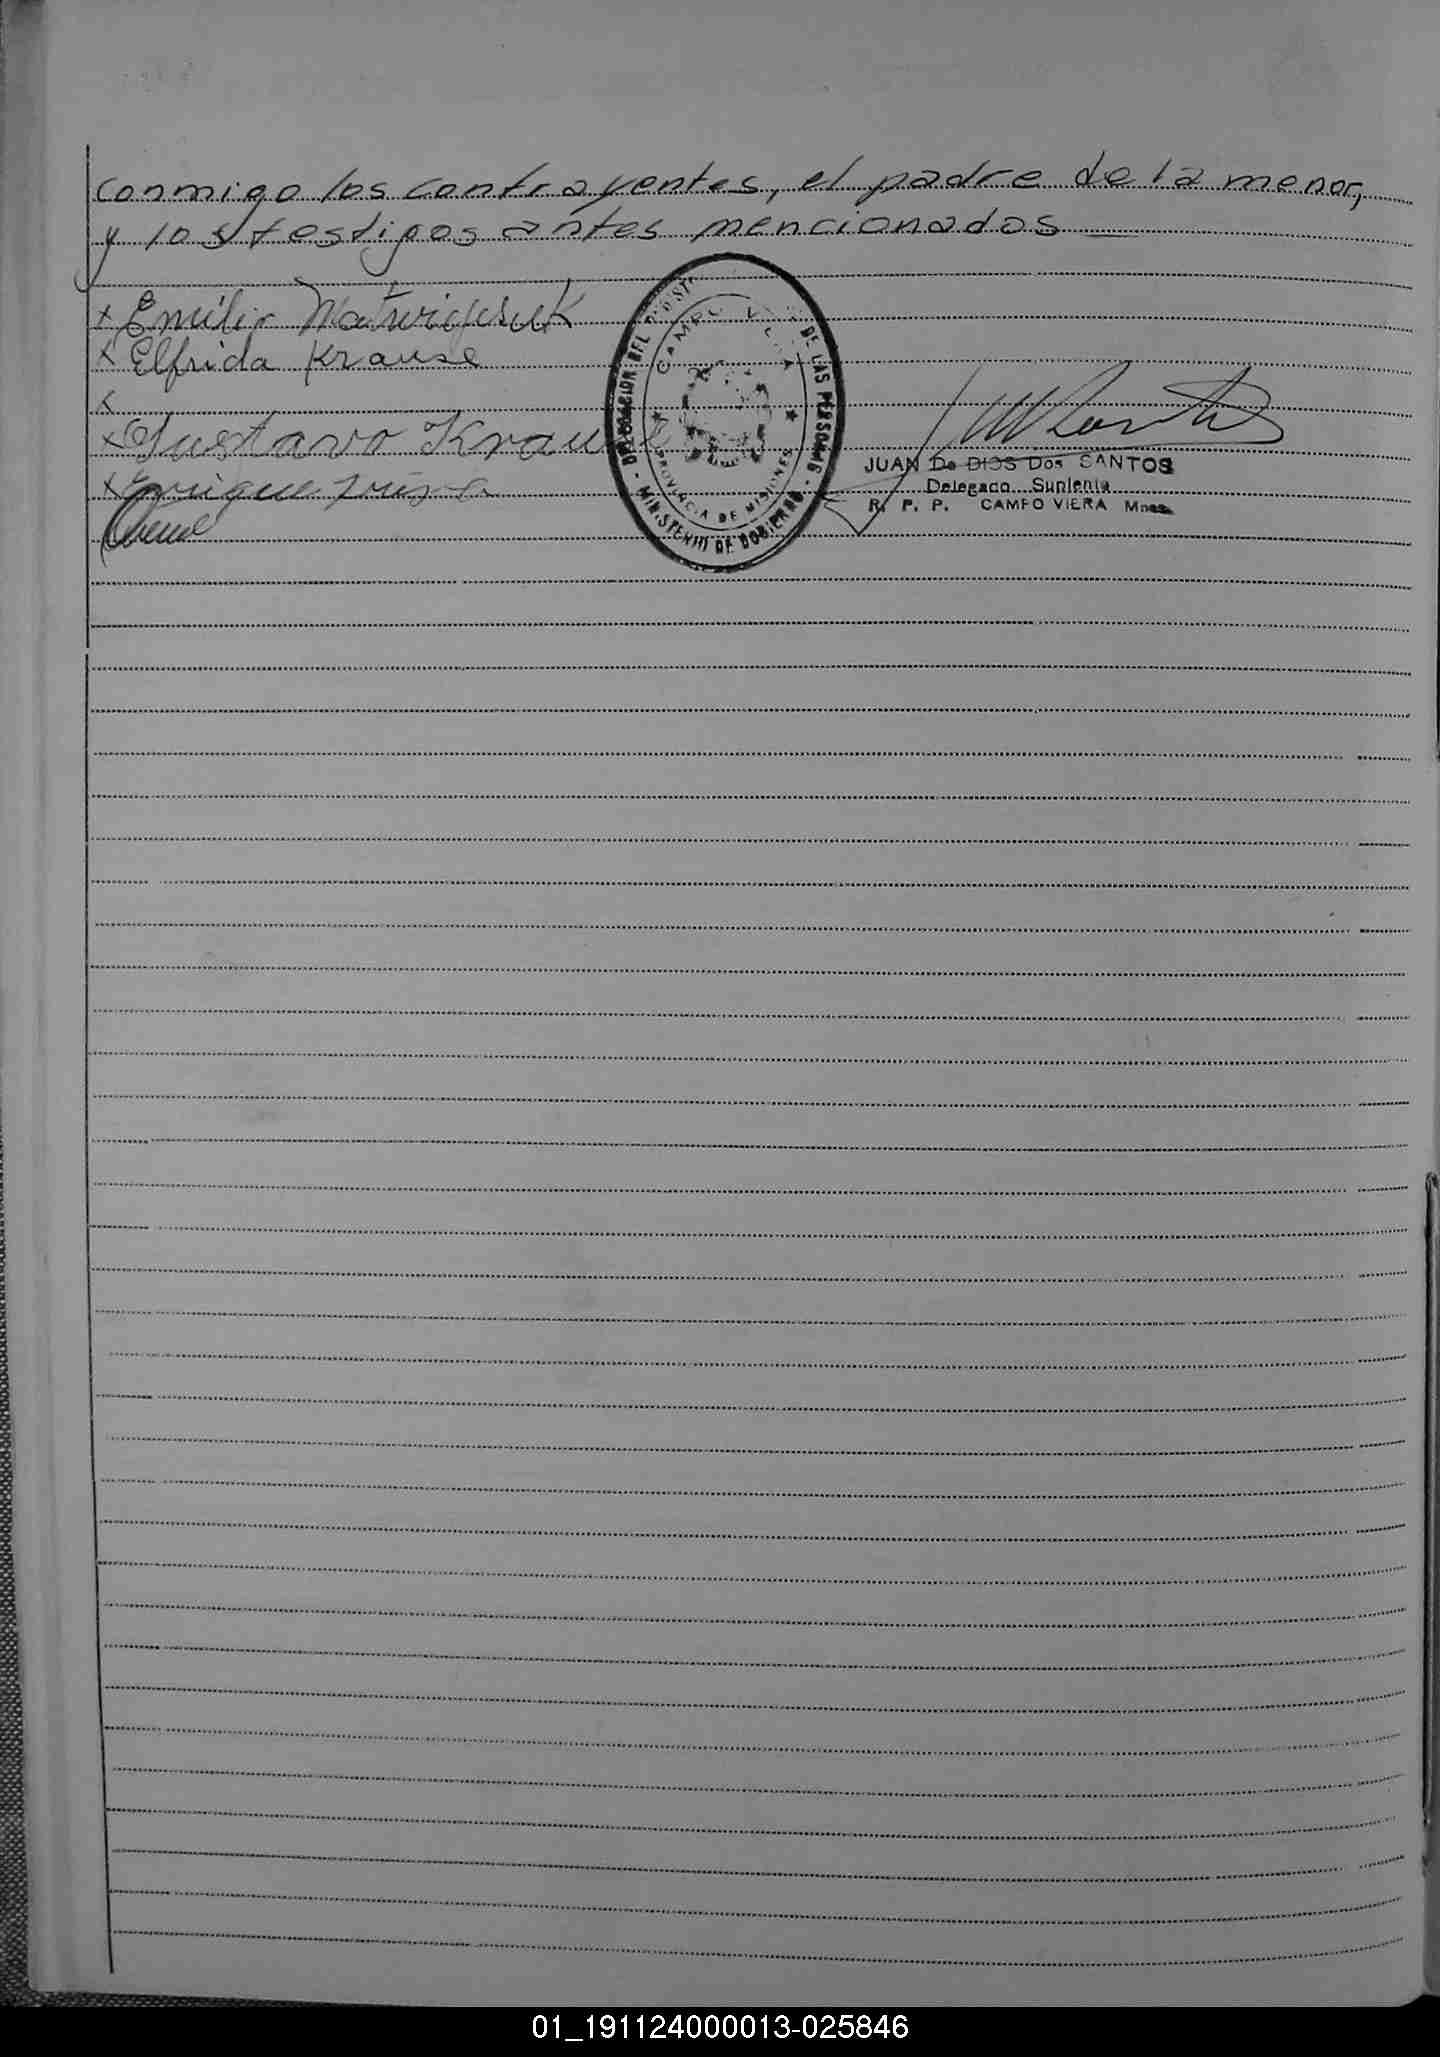 conmigo los contrayentes, el padre de la menor,
y los testigos antes mencionados —
x Emilio
x Elfrida Krause
x
x Gustavo Krause
x Enrique
DELEGACION DEL REGISTRO DE LAS PERSONAS
- MINISTERIO DE GOBIERNO -
CAMPO VIERA
PROVINCIA DE MISIONES
JUAN De DIOS Dos SANTOS
Delegado Suplente
R. P. P. CAMPO VIERA Mnes.
01_191124000013-025846